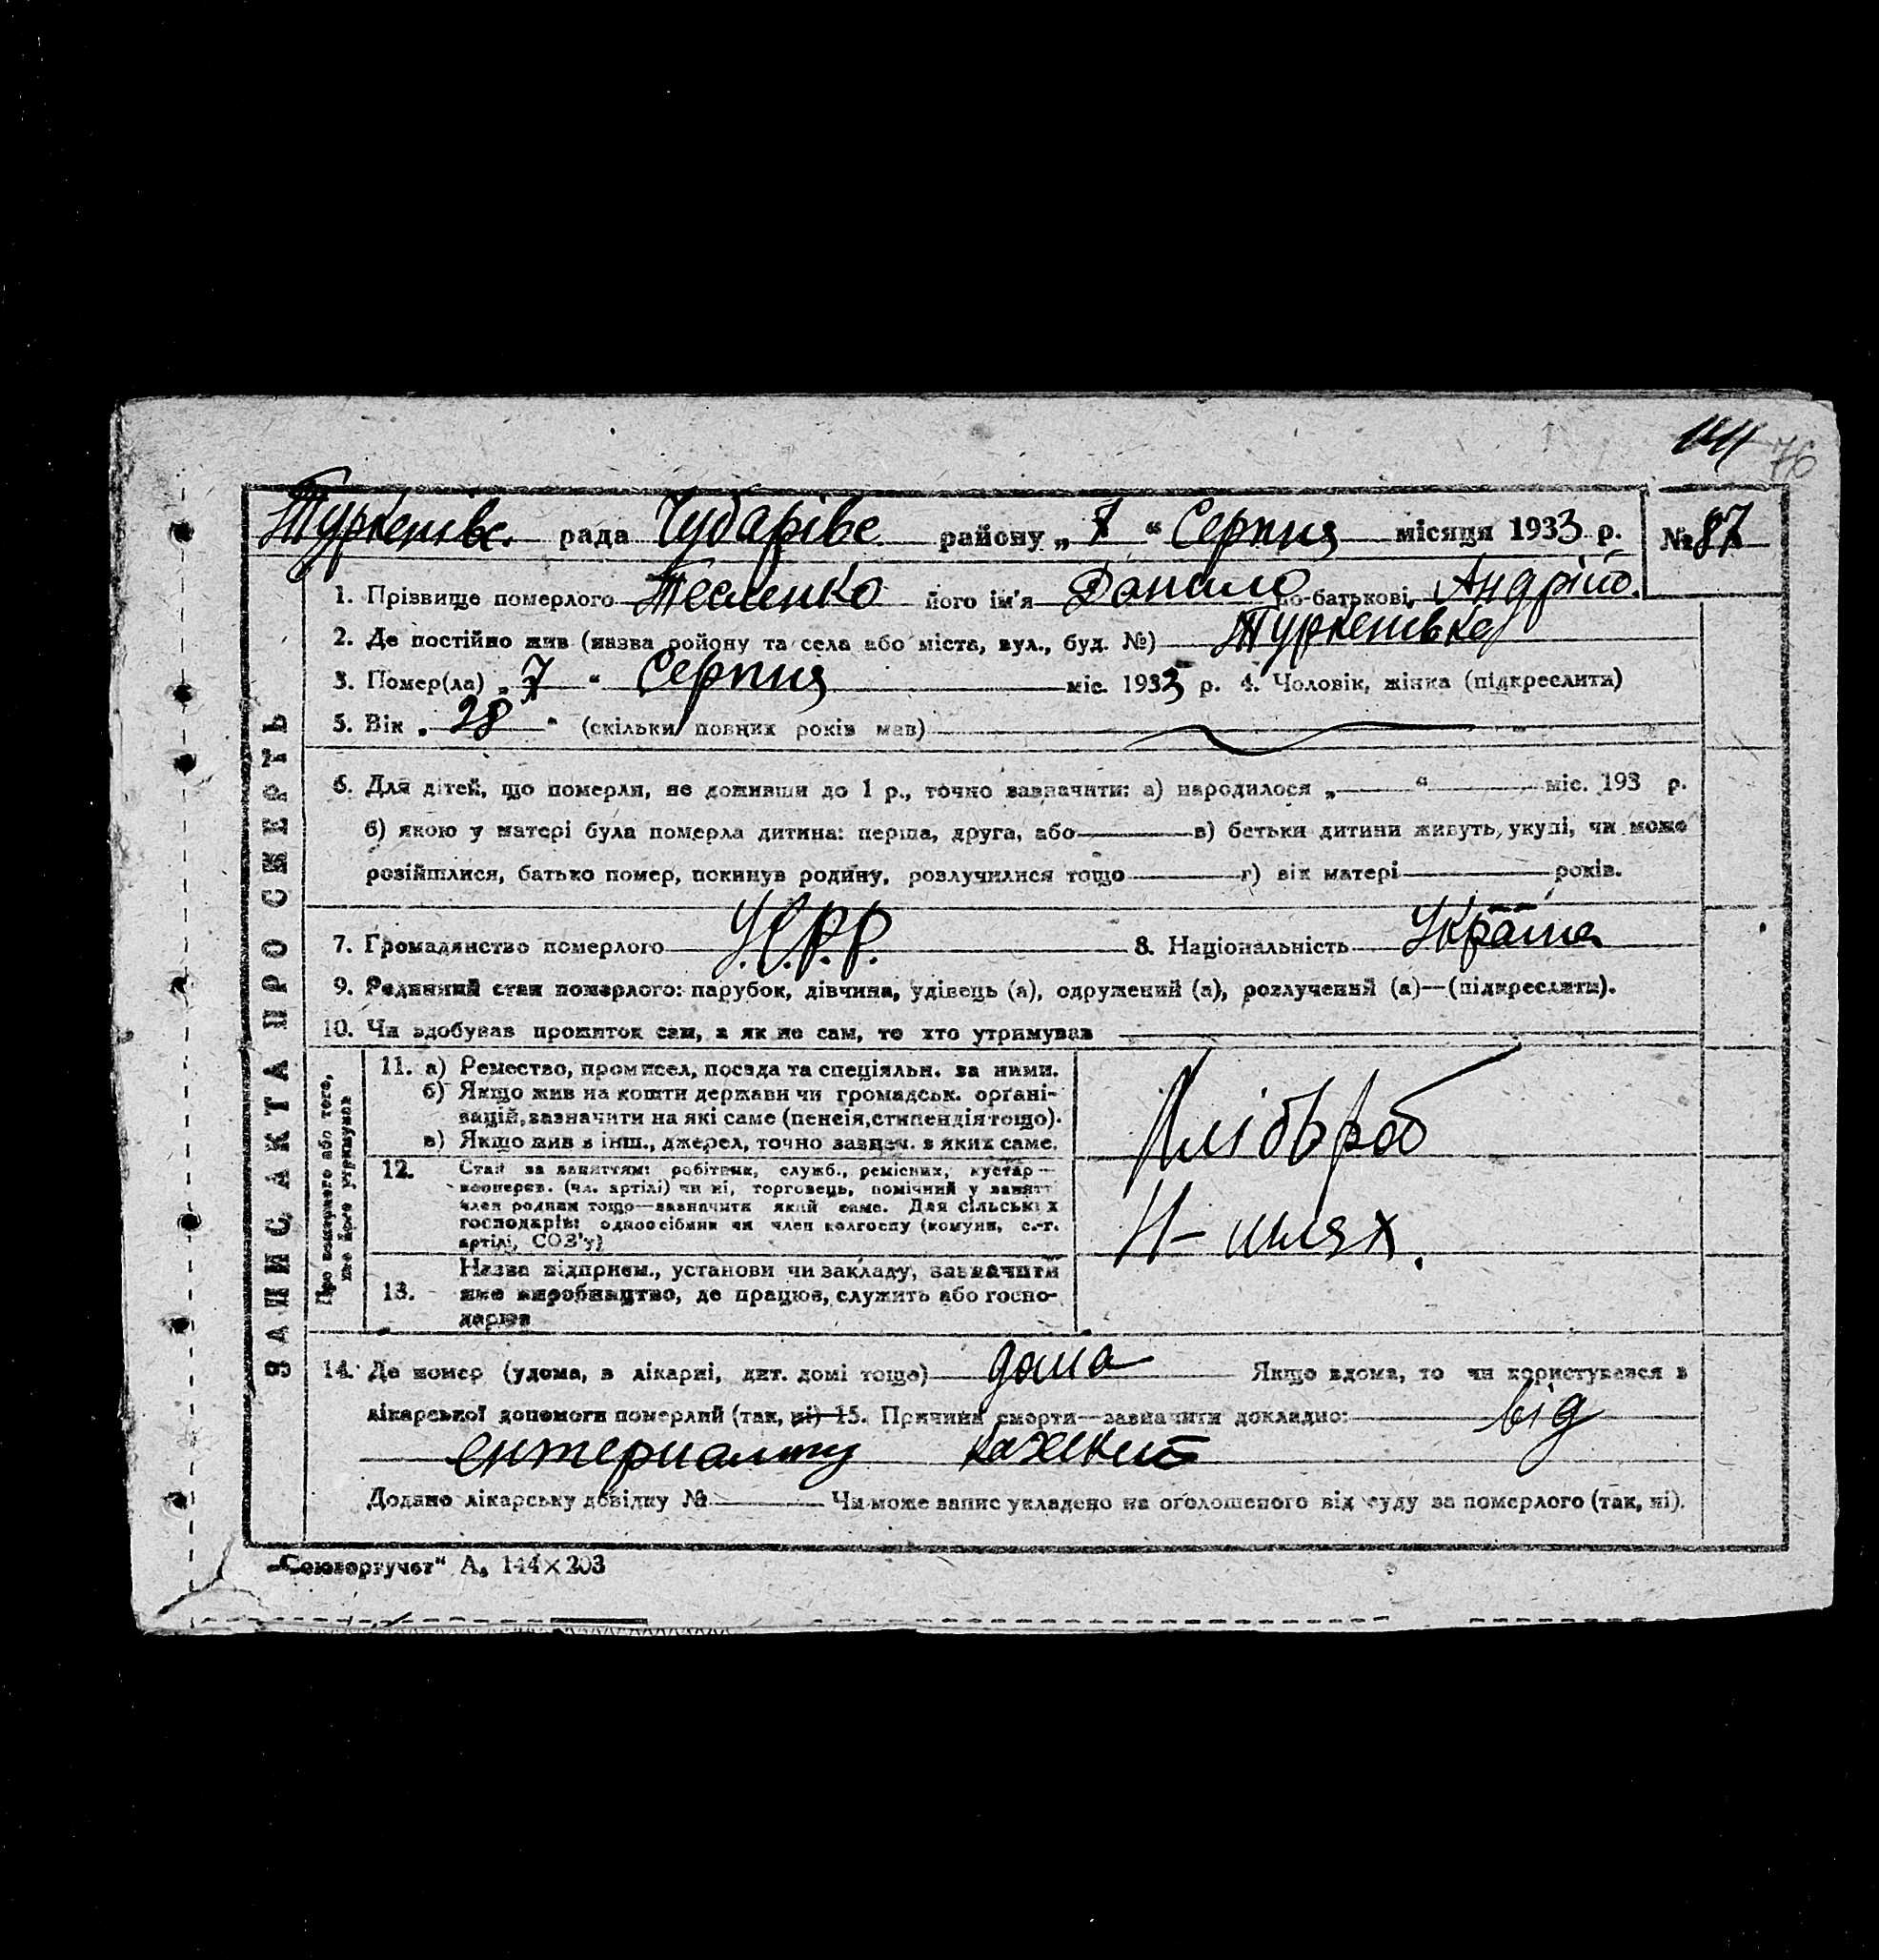 144 76
Туркенівс. рада Чубарівс району „ 7 “ Серпня місяця 1933 р. № 87
1. Прізвище померлого Тесленко його ім'я Данило по-батькові, Андрійо.
2. Де постійно жив (назва ройону та села або міста, вул., буд. №) Туркенівка
3. Помер(ла) „ 7 “ Серпня міс. 1933 р. 4. Чоловік, жінка (підкреслити)
5. Вік „ 28 “ (скільки повних років мав)
6. Для дітей, що померли, не доживши до 1 р., точно зазначити: а) народилося „ “ міс. 193 р.
б) якою у матері була померла дитина: перша, друга, або в) батьки дитини живуть, укупі, чи може
розійшлися, батько помер, покинув родину, розлучилися тощо г) вік матері років.
7. Громадянство померлого У.С.Р.Р. 8. Національність Україна
9. Родинний стан померлого: парубок, дівчина, удівець (а), одружений (а), розлучений (а)—(підкреслити).
10. Чи здобував прожиток сам, а як не сам, то хто утримував
ЗАПИС АКТА ПРО СМЕРТЬ
Про померлого або того, хто його утримував
11. а) Ремество, промисел, посада та спеціяльн. за ними.
б) Якщо жив на кошти держави чи громадськ. органі-
зацій, зазначити на які саме (пенсія, стипендія тощо).
в) Якщо жив з інш., джерел, точно зазнач. з яких саме.
Хлібороб
12. Стан за заняттям: робітник, служб., ремісник, кустар—
кооперов. (чл. артілі) чи ні, торговець, помічний у занятт
член родини тощо—зазначити який саме. Для сільських
господарів: одноосібник чи член колгоспу (комуни, с.-г.
артілі, СОЗ'у)
Н- шлях.
13. Назва підприєм., установи чи закладу, зазначити
яке виробництво, де працює, служить або госпо-
дарює
14. Де помер (удома, в лікарні, дит. домі тощо) дома Якщо вдома, то чи користувався з
лікарської допомоги померлий (так, ні) 15. Причина смерти—зазначити докладно: від
Додано лікарську довідку № Чи може запис укладено на оголошеного від суду за померлого (так, ні).
„Союзоргучет“ А, 144×203